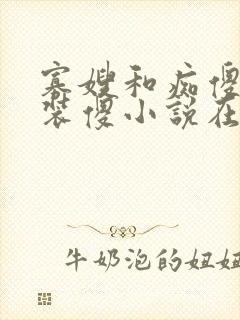 寡嫂和痴傻
装傻小说在
牛奶泡的妞妞